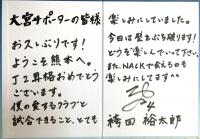 大宮サポーターの皆様
お久しぶりです!
ようこそ熊本へ。
J2昇格おめでとう
ございます。
僕の愛するクラブと
試合できること、とても
楽しみにしていました。
今日は髪をぶち破ります!
どうぞ楽しんでいって下さい。
また、NACKで会えるのも
楽しみにしてます^^
4
袴田 裕太郎